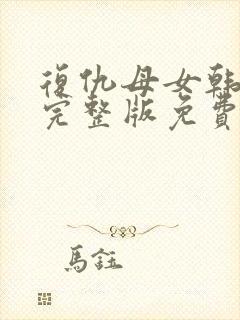 復仇母女韩
完整版免費
馬鈺